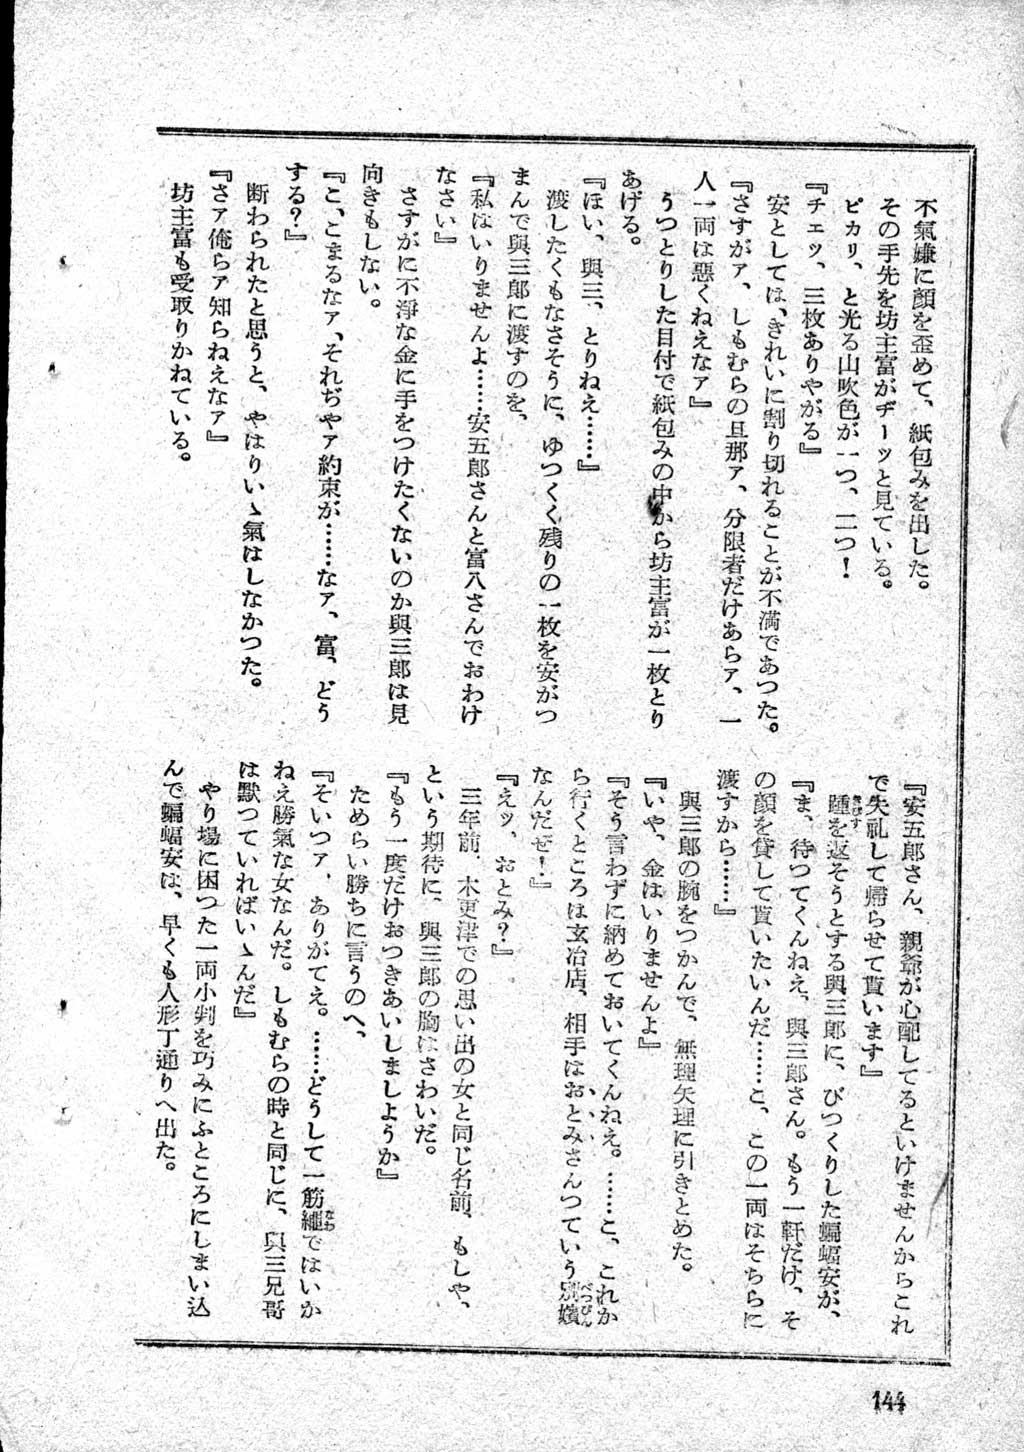 不氣嫌に顔を歪めて、紙包みを出した。
その手先を坊主富がヂーッと見ている。
ピカリ、と光る山吹色が一つ、二つ！
『チェッ、三枚ありやがる』
安としては、きれいに割り切れることが不満であつた。
『さすがァ、しもむらの旦那ァ、分限者だけあらァ、一
人一両は悪くねえなァ』
うつとりした目付で紙包みの中から坊主富が一枚とり
あげる。
『ほい、與三、とりねえ……』
渡したくもなさそうに、ゆつくく残りの一枚を安がつ
まんで與三郎に渡すのを、
『私はいりませんよ……安五郎さんと富八さんでおわけ
なさい』
さすがに不淨な金に手をつけたくないのか與三郎は見
向きもしない。
『こ、こまるなァ、それぢやァ約束が……なァ、富、どう
する？』
断わられたと思うと、やはりいゝ氣はしなかつた。
『さァ俺らァ知らねえなァ』
坊主富も受取りかねている。
『安五郎さん、親爺が心配してるといけませんからこれ
で失礼して帰らせて貰います』
踵を返そうとする與三郎に、びつくりした蝙蝠安が、
『ま、待つてくんねえ、與三郎さん。もう一軒だけ、そ
の顔を貸して貰いたいんだ……こ、この一両はそちらに
渡すから……』
與三郎の腕をつかんで、無理矢理に引きとめた。
『いや、金はいりませんよ』
『そう言わずに納めておいてくんねえ。……こ、これか
ら行くところは玄冶店、相手はおとみさんつていう別嬪
なんだぜ！』
『えッ、おとみ？』
三年前、木更津での思い出の女と同じ名前、もしや、
という期待に、與三郎の胸はさわいだ。
『もう一度だけおつきあいしましようか』
ためらい勝ちに言うのへ、
『そいつァ、ありがてえ。……どうして一筋繩ではいか
ねえ勝氣な女なんだ。しもむらの時と同じに、與三兄哥
は默つていればいゝんだ』
やり場に困つた一両小判を巧みにふところにしまい込
んで蝙蝠安は、早くも人形丁通りへ出た。
144